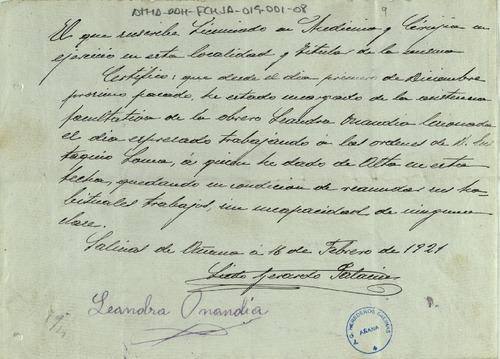 ATHA-DDH-FCHSA-019-001-08
9
El que suscribe Licenciado en Medicina y Cirugia en
ejercicio en esta localidad y Titular de la misma
Certifico: que desde el dia primero de Diciembre
proximo pasado, he estado encargado de la asistencia
facultativa de la obrera Leandra Onandia lesionada
el dia expresado trabajando a las ordenes de D.
a quien he dado de Alta en esta
fecha, quedando en condicion de reanudar sus ha-
bituales trabajos, sin incapacidad de ninguna
clase.
Salinas de Añana á 16 de Febrero de 1921
Gerardo
Leandra Onandia
HEREDEROS SALINAS
AÑANA